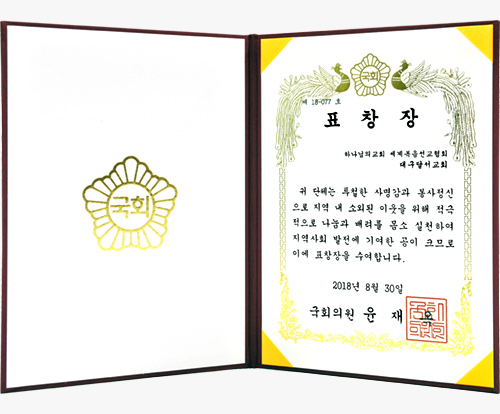 국회
국회
제 18-077 호
표창장
하나님의교회 세계복음선교협회
대구달서교회
귀 단체는 투철한 사명감과 봉사정신
으로 지역 내 소외된 이웃을 위해 적극
적으로 나눔과 배려를 몸소 실천하여
지역사회 발전에 기여한 공이 크므로
이에 표창장을 수여합니다.
2018년 8월 30일
국회의원 윤 재 옥